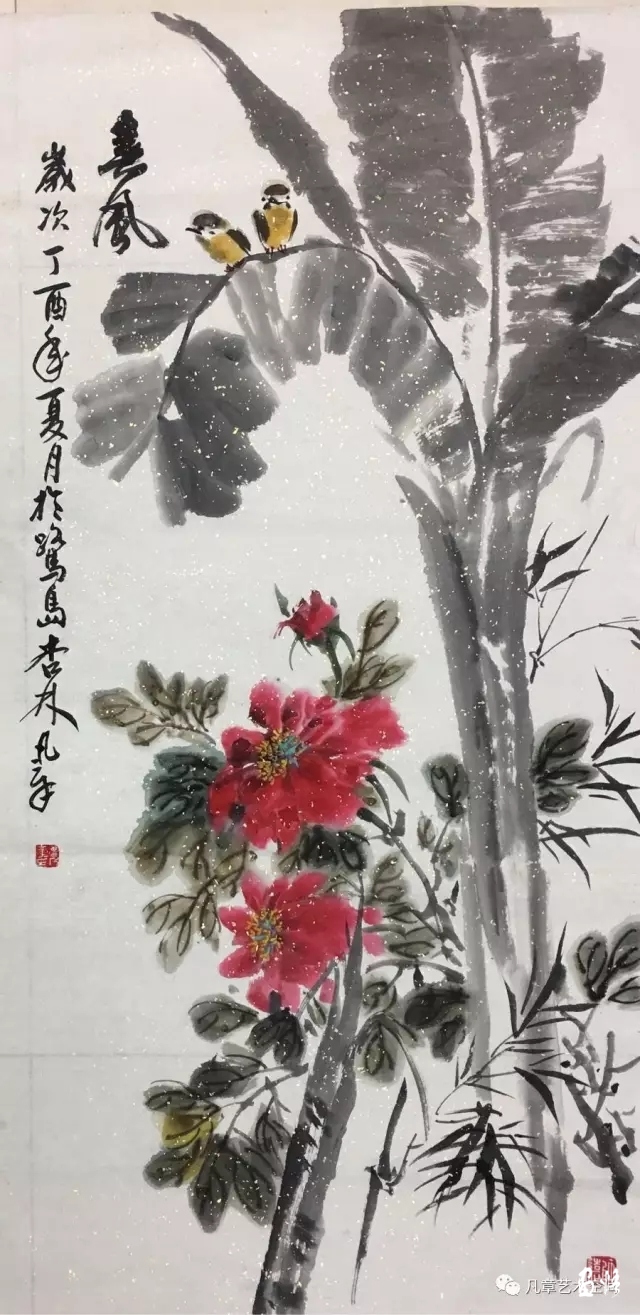 春風
歲次丁酉年夏月於鷺島杏林凡章
凡章艺术空间